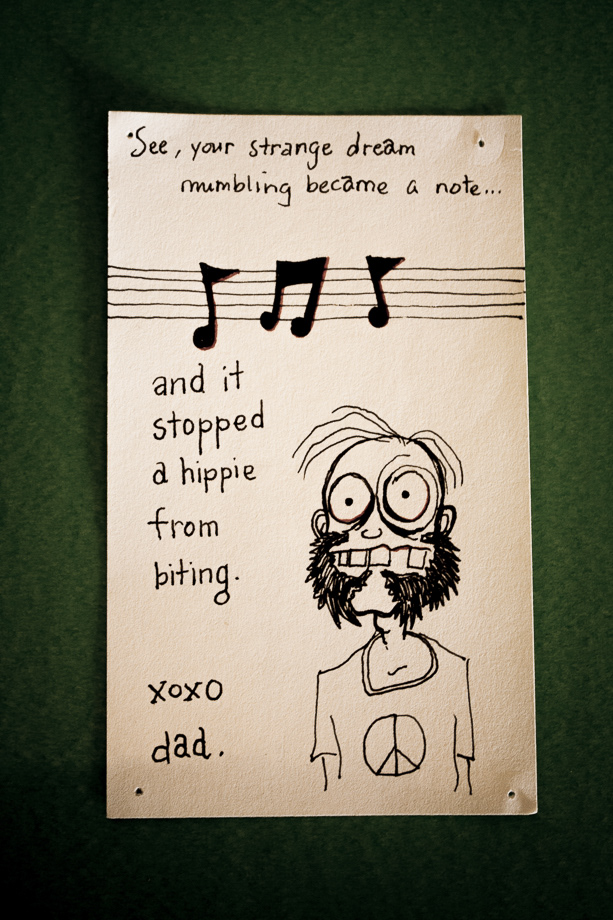 See, your strange dream
mumbling became a note...
and it
stopped
a hippie
from
biting.
xoxo
dad.